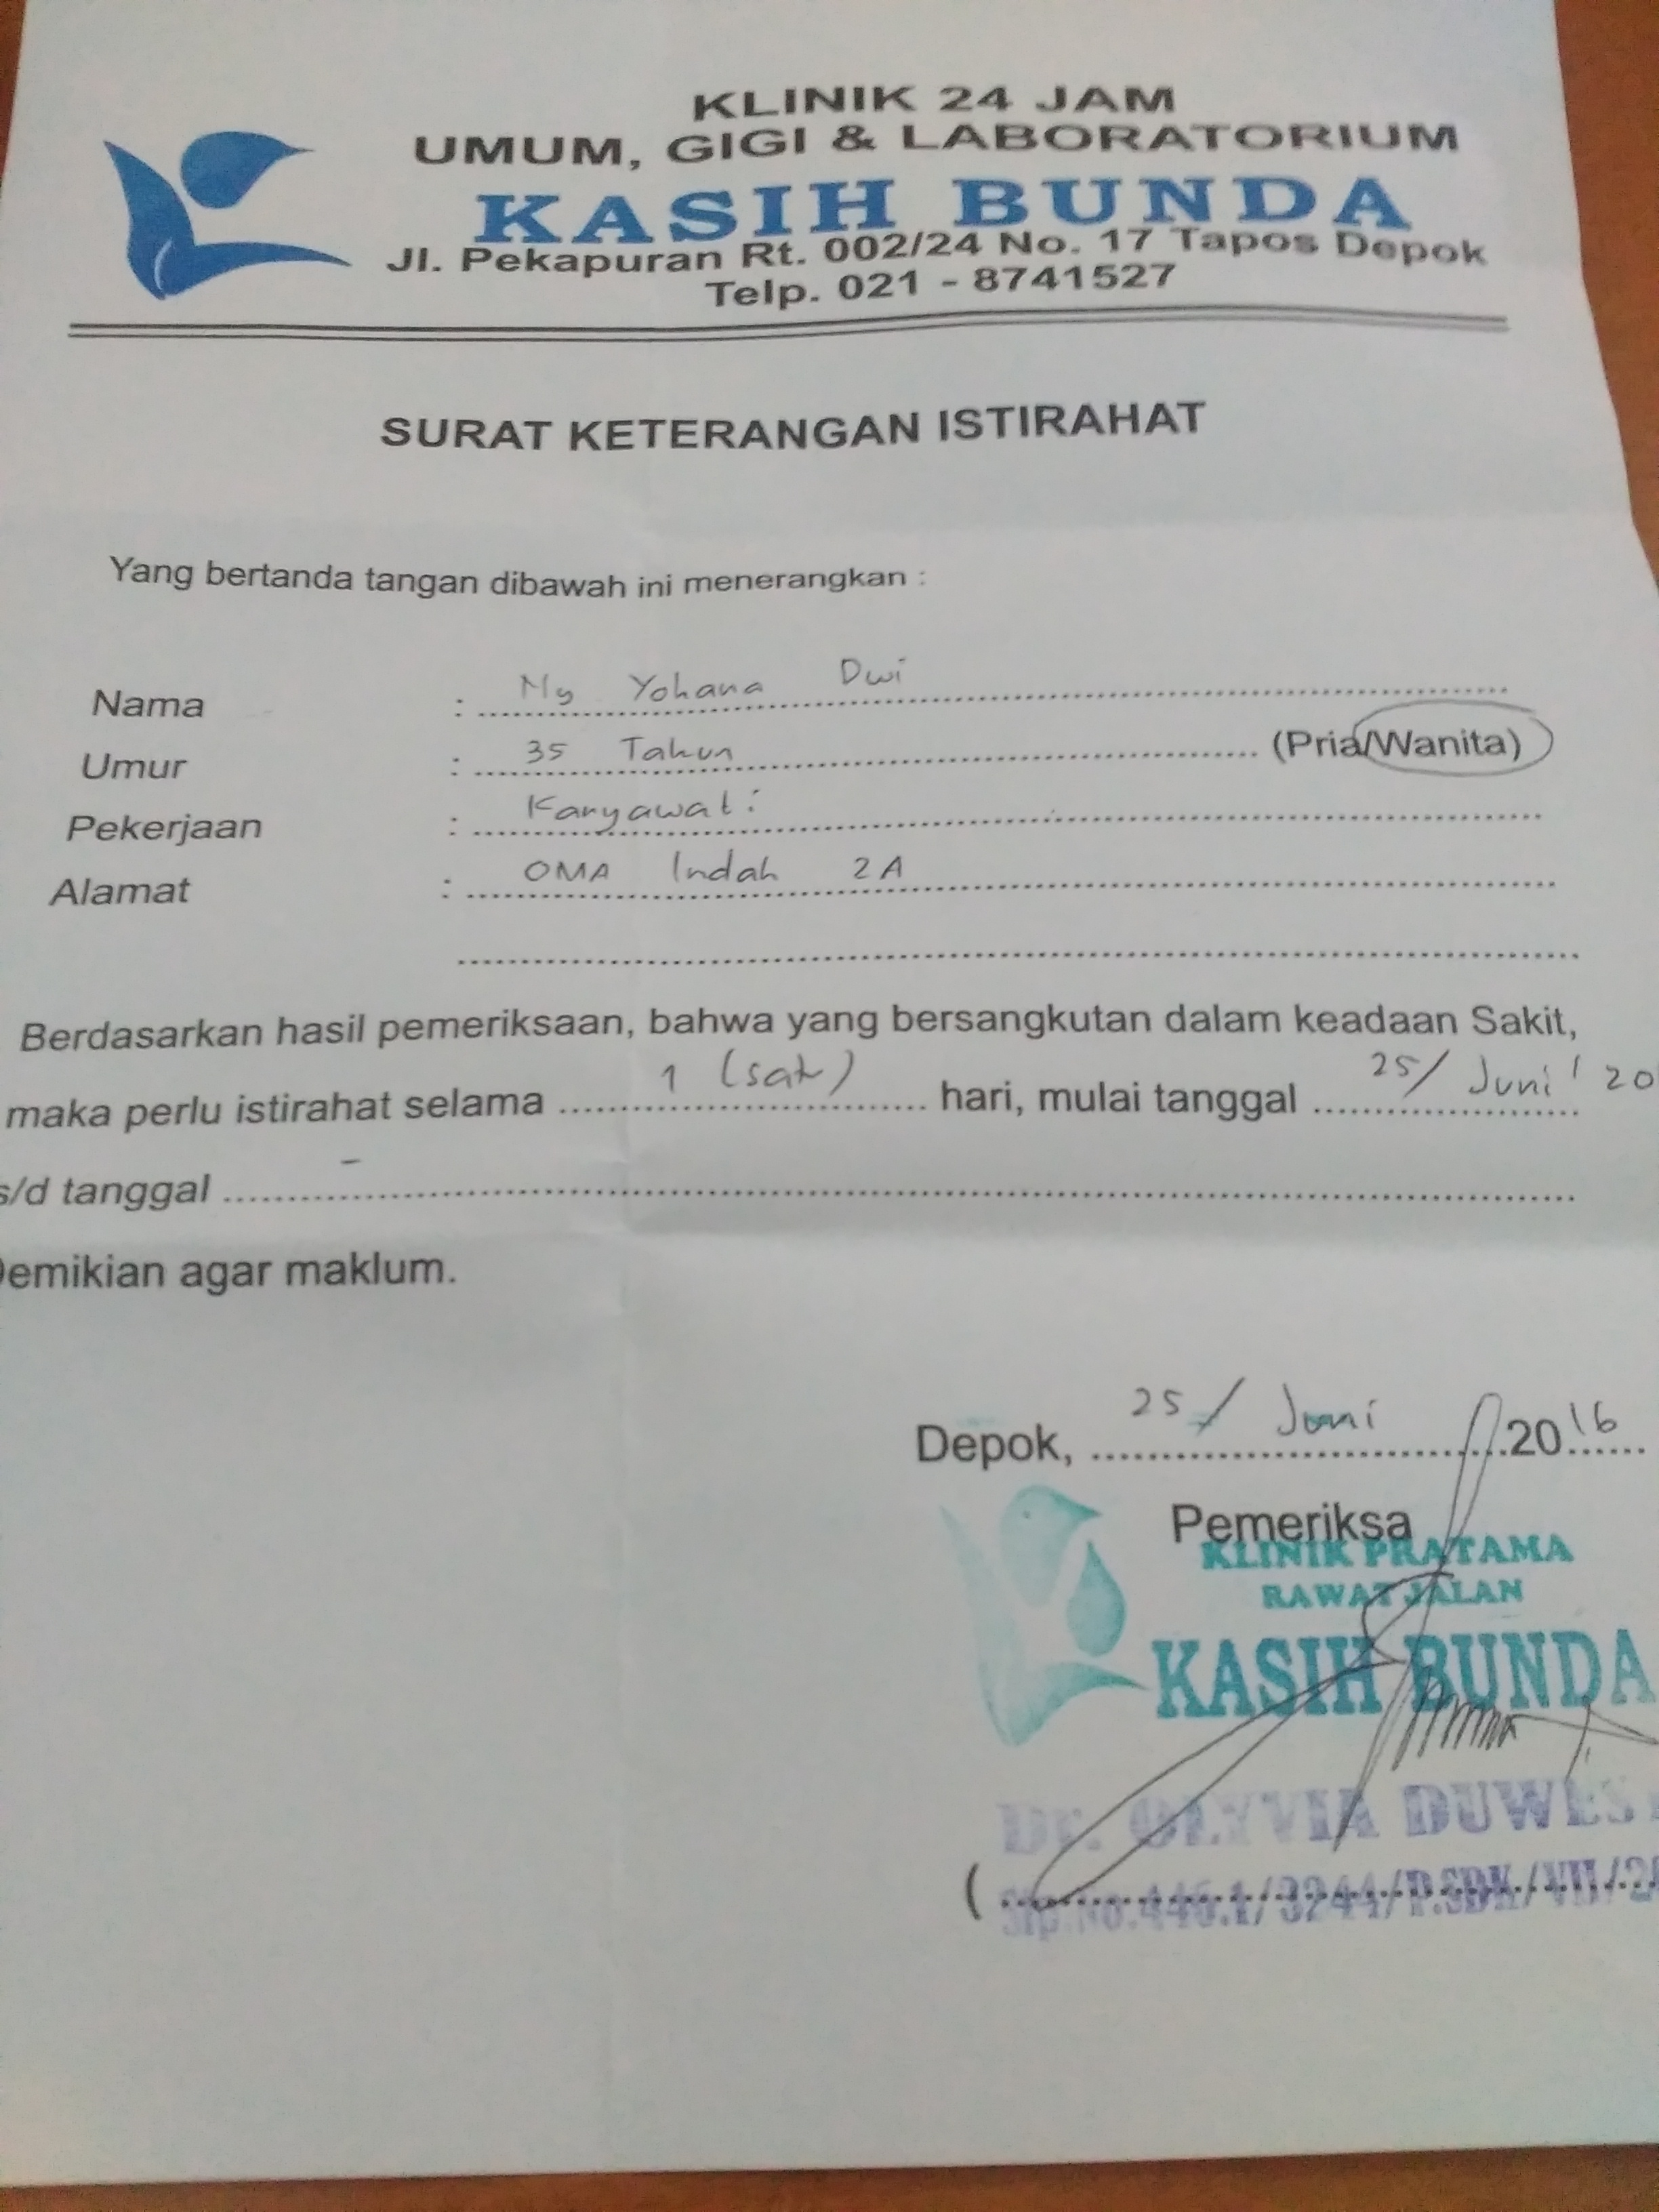 KLINIK 24 JAM
UMUM, GIGI & LABORATORIUM
KASIH BUNDA
Jl. Pekapuran Rt. 002/24 No. 17 Tapos Depok
Telp. 021 - 8741527
SURAT KETERANGAN ISTIRAHAT
Yang bertanda tangan dibawah ini menerangkan :
Nama : Ny Yohana Dwi
Umur : 35 Tahun (Pria/Wanita)
Pekerjaan : Karyawati
Alamat : OMA Indah 2A
Berdasarkan hasil pemeriksaan, bahwa yang bersangkutan dalam keadaan Sakit,
maka perlu istirahat selama 1 (satu) hari, mulai tanggal 25/ Juni' 20
s/d tanggal -
Demikian agar maklum.
Depok, 25/ Juni 2016
Pemeriksa
KLINIK PRATAMA
RAWAT JALAN
KASIH BUNDA
Dr. OLYVIA DUWES
Sip.No.446.1/3244/P.SDK/VII/20